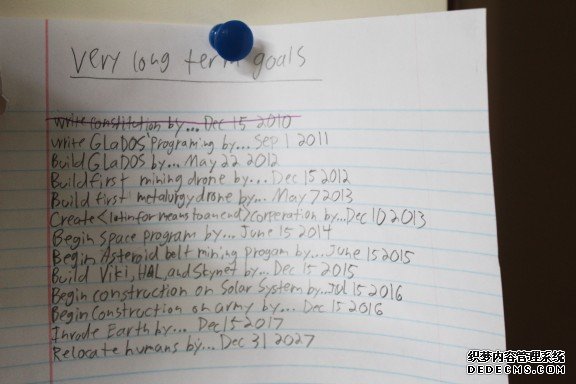 Very long term goals
Write constitution by... Dec 15 2010
Write GLaDOS programing by... Sep 1 2011
Build GLaDOS by... May 22 2012
Build first mining drone by... Dec 15 2012
Build first metalurgy drone by... May 7 2013
Create <latin for means to an end> Corperation by... Dec 10 2013
Begin Space program by... June 15 2014
Begin Asteroid belt mining progam by... June 15 2015
Build Viki, HAL, and Skynet by... Dec 15 2015
Begin construction on Solar System by... Jul 15 2016
Begin Construction on army by... Dec 15 2016
Invade Earth by... Dec 15 2017
Relocate humans by... Dec 31 2027
织梦内容管理系统
DEDECMS.COM